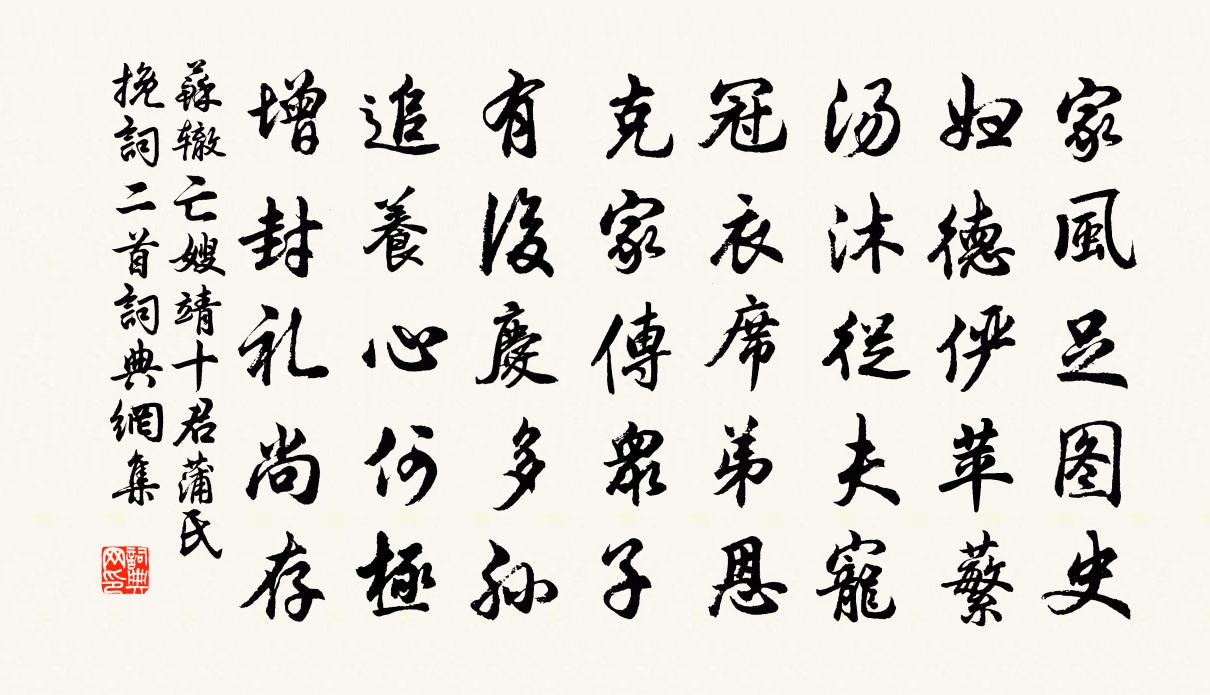 家風足图史
妇德俨苹蘩
汤沐從夫寵
冠衣席弟恩
克家傳衆子
有後慶多孙
追養心何極
增封礼尚存
蘇辙亡嫂靖十君蒲氏
挽詞二首詞典網集
詞典网印